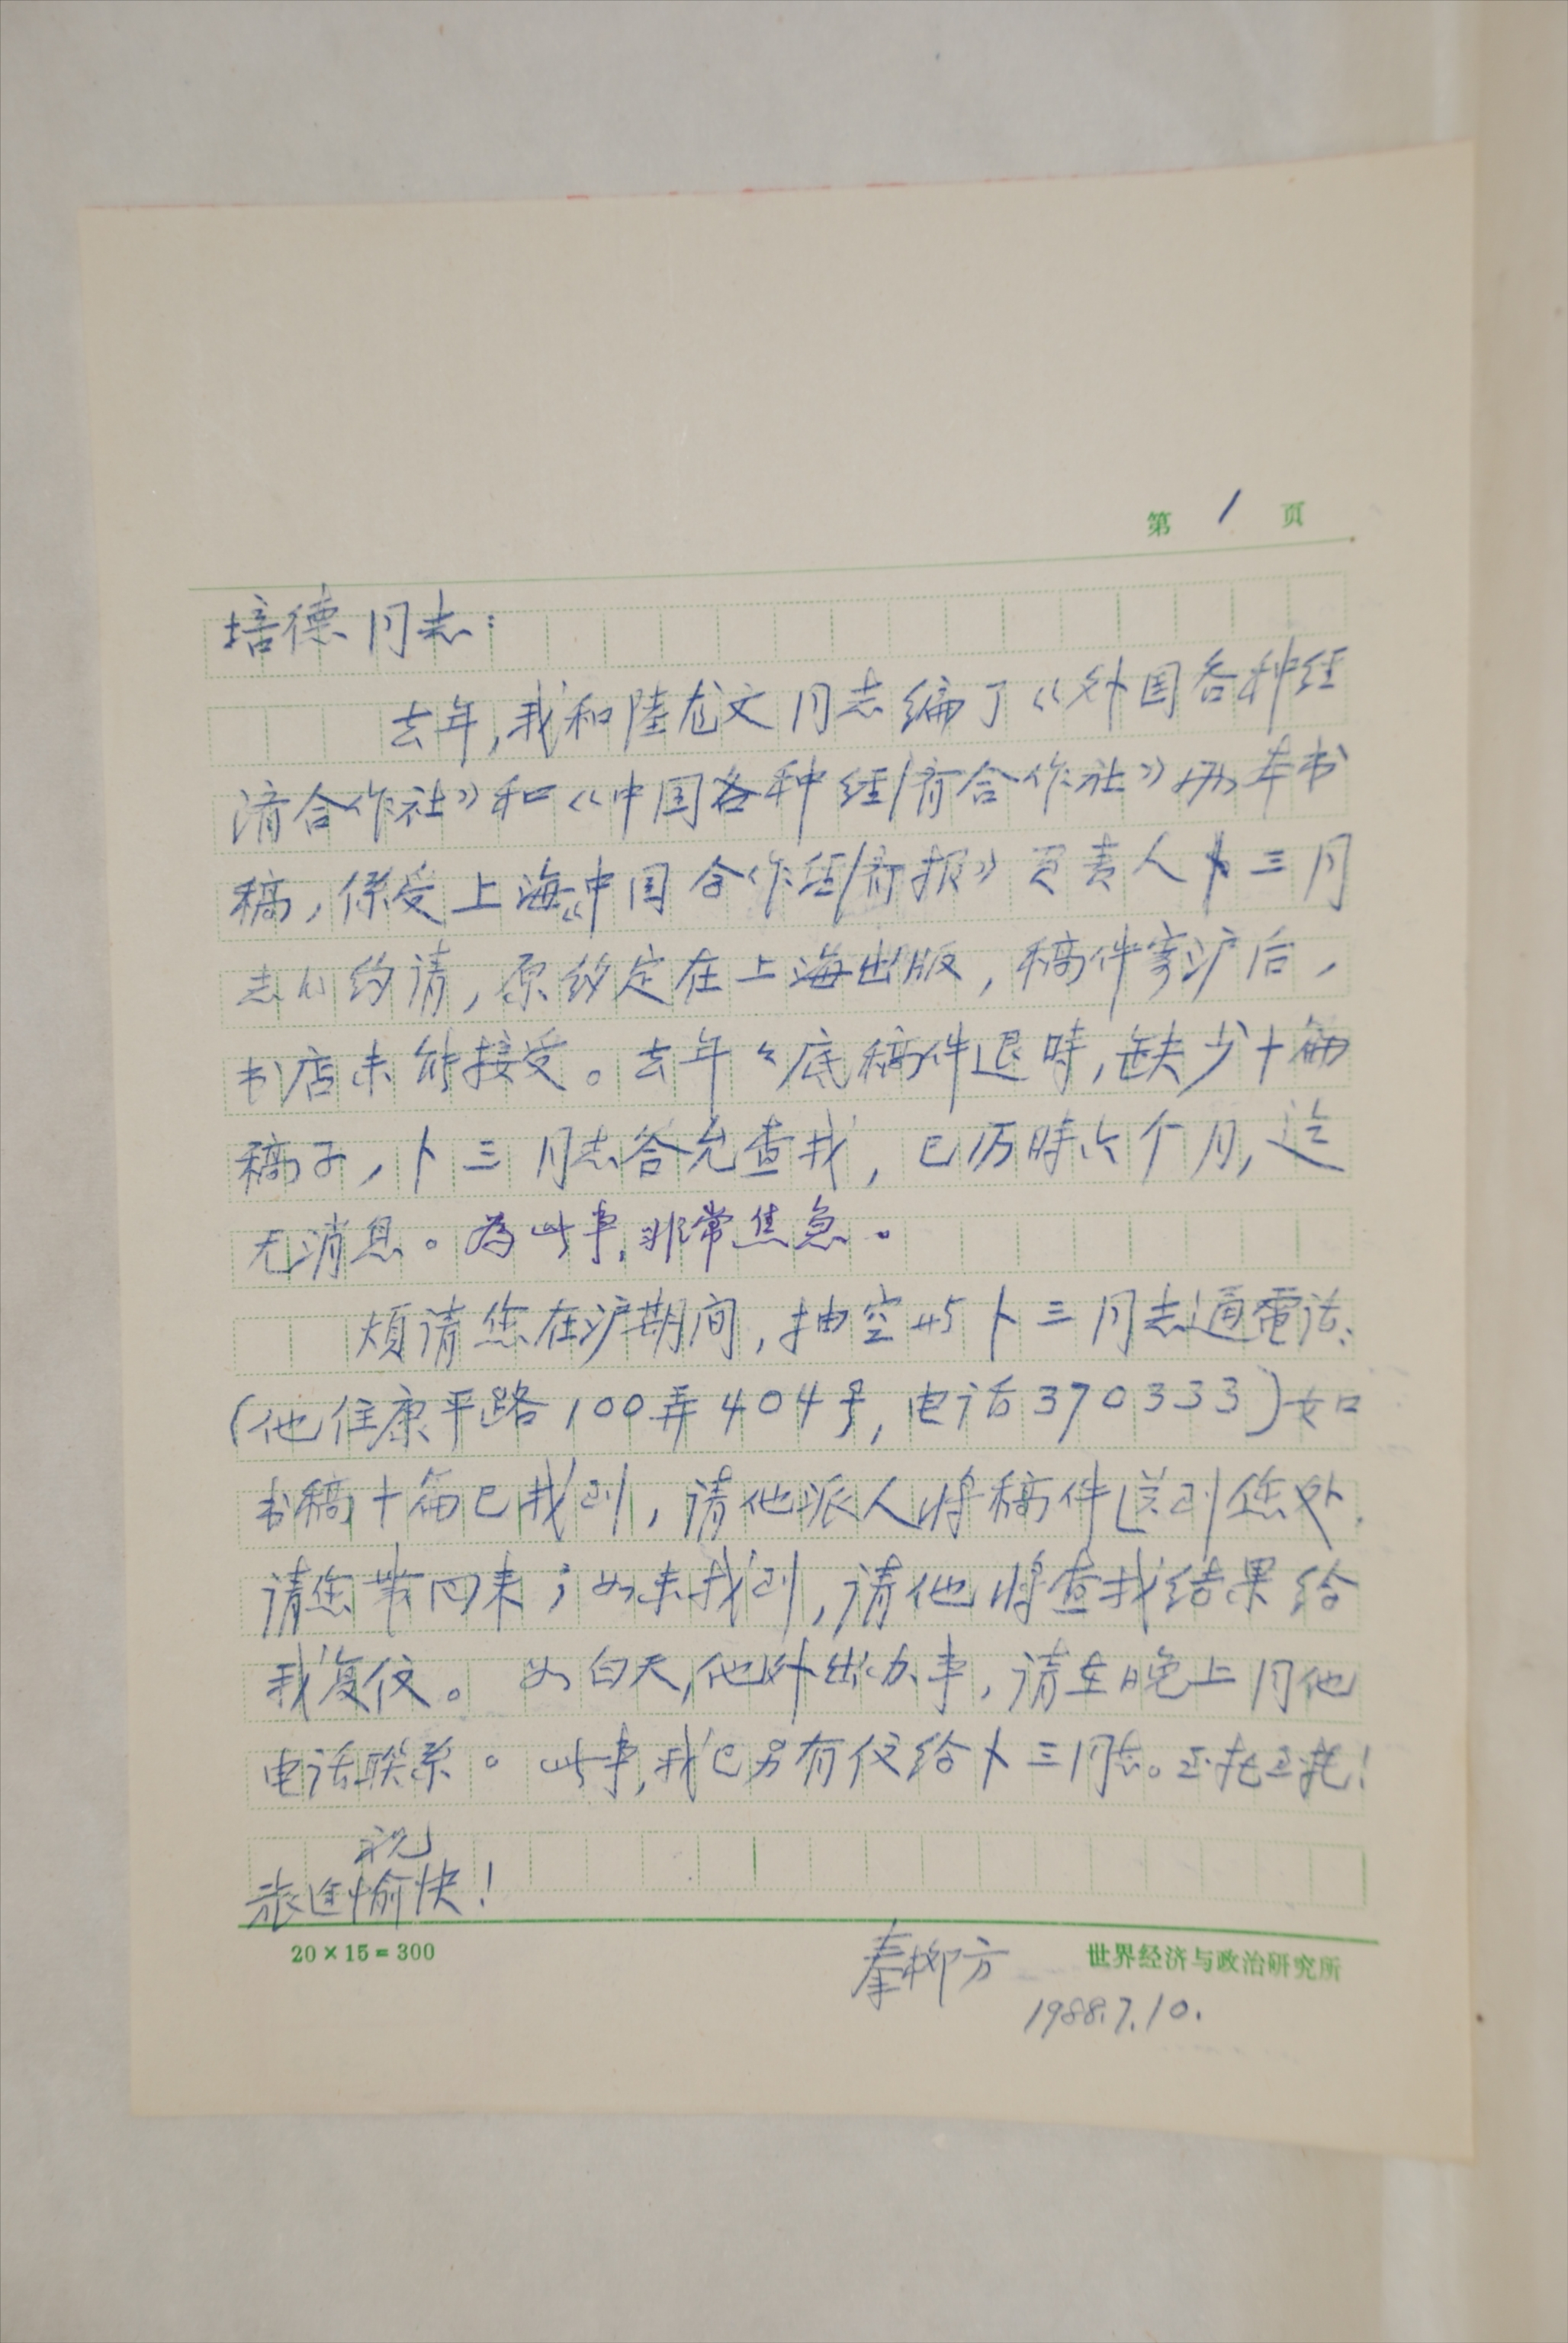 第 1 页
培德同志：
去年，我和陸龙文同志编了《外国各种经
济合作社》和《中国各种经济合作社》两本书
稿，係受上海《中国合作经济报》负责人卜三同
志的约请，原约定在上海出版，稿件寄沪后，
书店未能接受。去年年底稿件退時，缺少十篇
稿子，卜三同志答允查找，已历時六个月，迄
无消息。为此事，非常焦急。
烦请您在沪期间，抽空与卜三同志通電话，
(他住康平路100弄404号，电话370333)如
书稿十篇已找到，请他派人将稿件送到您处，
请您带回来；如未找到，请他将查找结果给
我复信。如白天，他外出办事，请在晚上同他
电话联系。此事，我已另有信给卜三同志。至托至托！
祝
旅途愉快！
20×15=300
秦柳方
世界经济与政治研究所
1988.7.10.